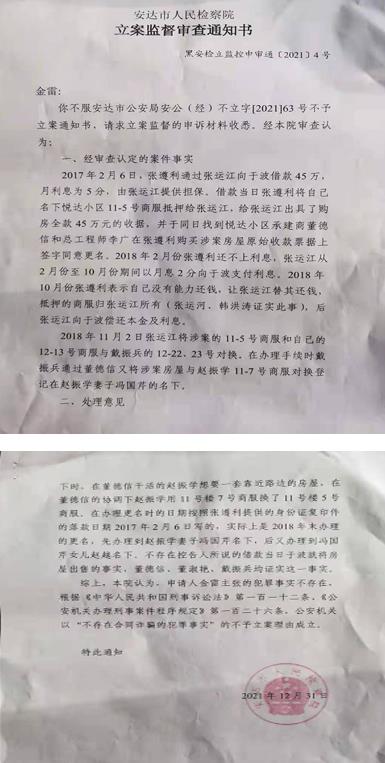 安达市人民检察院
立案监督审查通知书
黑安检立监控申审通〔2021〕4号
金雷：
你不服安达市公安局安公（经）不立字[2021]63号不予
立案通知书，请求立案监督的申诉材料收悉。经本院审查认
为：
一、经审查认定的案件事实
2017年2月6日，张遵利通过张运江向于波借款45万，
月利息为5分，由张运江提供担保。借款当日张遵利将自己
名下悦达小区11-5号商服抵押给张运江，给张运江出具了购
房全款45万元的收据，并于同日找到悦达小区承建商董德
信和总工程师李广在张遵利购买涉案房屋原始收款票据上
签字同意更名。2018年2月份张遵利还不上利息，张运江从
2月份至10月份期间以月息2分向于波支付利息。2018年
10月份张遵利表示自己没有能力还钱，让张运江替其还钱，
抵押的商服归张运江所有（张运河、韩洪涛证实此事），后
张运江向于波偿还本金及利息。
2018年11月2日张运江将涉案的11-5号商服和自己的
12-13号商服与戴振兵的12-22、23号对换。在办理手续时戴
振兵通过董德信又将涉案房屋与赵振学11-7号商服对换登
记在赵振学妻子冯国芹的名下。
二、处理意见
下时，在董德信干活的赵振学想要一套靠近路边的房屋，在
董德信的协调下赵振学用11号楼7号商服换了11号楼5号
商服。在办理更名时的日期按照张遵利提供的身份证复印件
的落款日期2017年2月6日写的，实际上是2018年末办理
的更名，先办理到赵振学妻子冯国芹名下，后又办理到冯国
芹女儿赵越名下。不存在控告人所说的借款当日于波就将房
屋出售的事实，董德信、董淑艳、戴振兵均证实这一事实。
综上，本院认为，申请人金雷主张的犯罪事实不存在，
根据《中华人民共和国刑事诉讼法》第一百一十二条、《公
安机关办理刑事案件程序规定》第一百二十六条，公安机关
以“不存在合同诈骗的犯罪事实”的不予立案理由成立。
特此通知
2021年12月31日